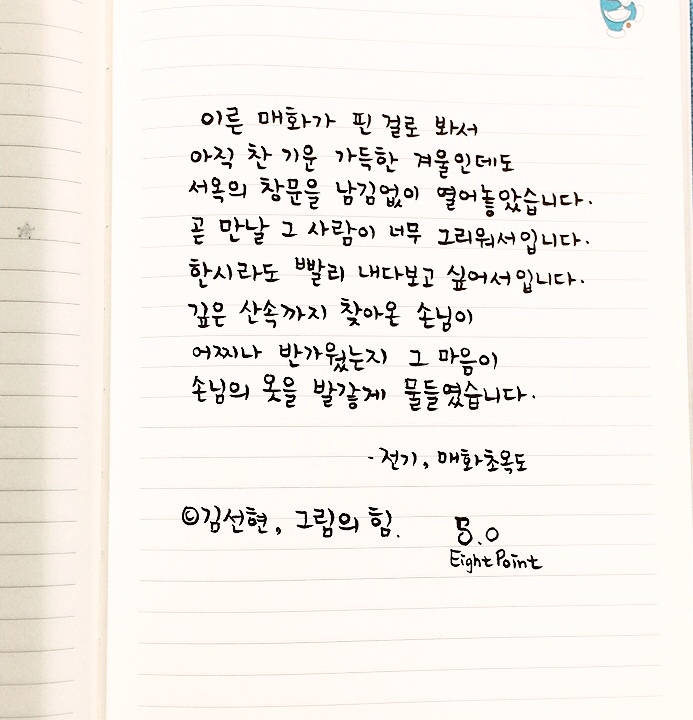 이른 매화가 핀 걸로 봐서
아직 찬 기운 가득한 겨울인데도
서옥의 창문을 남김없이 열어놓았습니다.
곧 만날 그 사람이 너무 그리워서입니다.
한시라도 빨리 내다보고 싶어서입니다.
깊은 산속까지 찾아온 손님이
어찌나 반가웠는지 그 마음이
손님의 옷을 발갛게 물들였습니다.
-전기, 매화초옥도
©김선현, 그림의 힘.
5.0
EightPoint